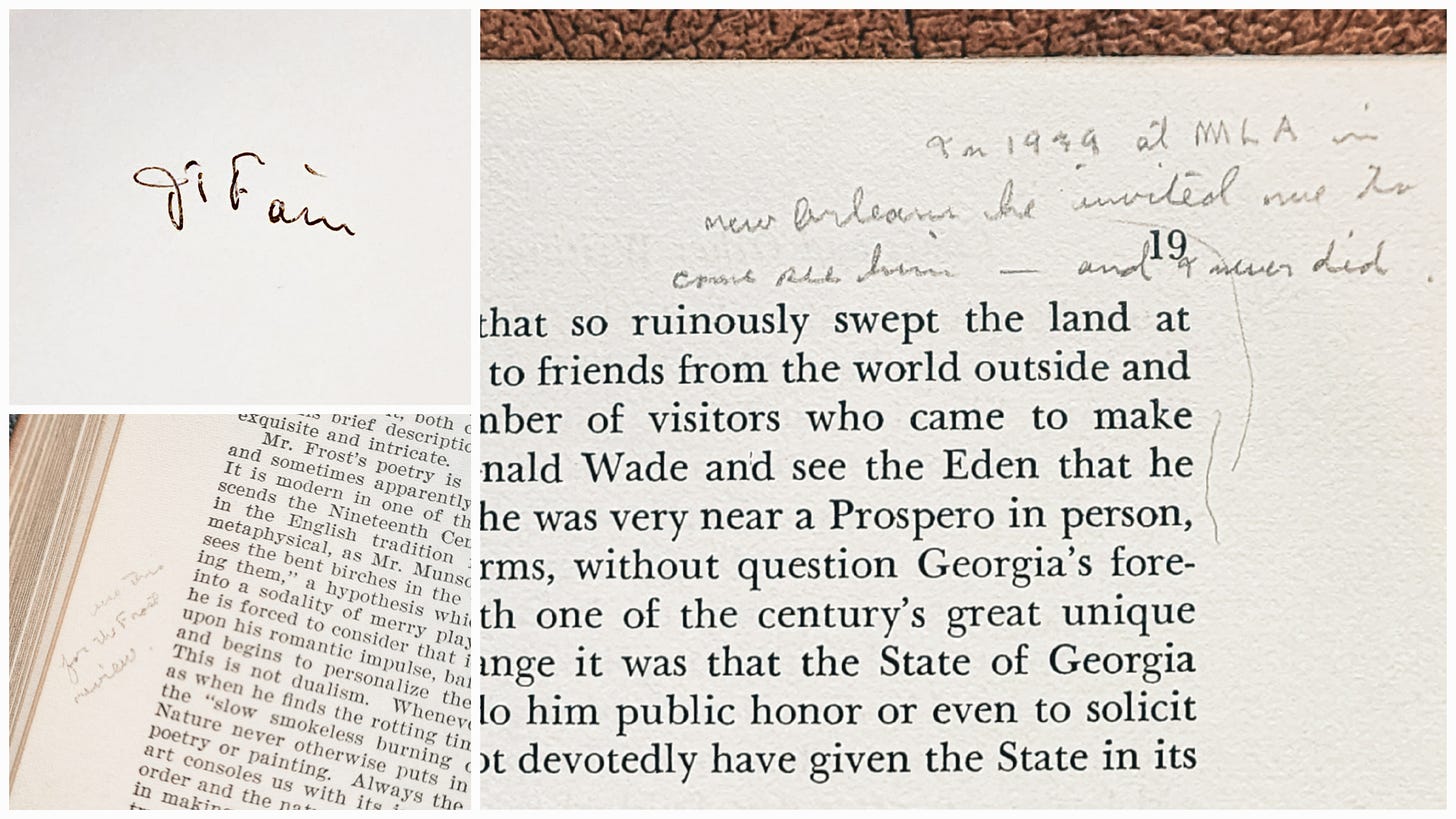 JT Fain
exquisite and intricate.
Mr. Frost's poetry is
and sometimes apparently
It is modern in one of th
scends the Nineteenth Cen
in the English tradition
metaphysical, as Mr. Munso
sees the bent birches in the
ing them," a hypothesis whi
into a sodality of merry play
he is forced to consider that i
upon his romantic impulse, ba
and begins to personalize the
This is not dualism. Wheneve
as when he finds the rotting tim
the "slow smokeless burning
Nature never otherwise puts in
poetry or painting. Always the
art consoles us with its
order and the
in making
use this
for the Frost
review.
In 1939 at MLA in
new Orleans he invited me to
come see him — and I never did.
19
that so ruinously swept the land at
to friends from the world outside and
mber of visitors who came to make
nald Wade and see the Eden that he
he was very near a Prospero in person,
rms, without question Georgia's fore-
th one of the century's great unique
ange it was that the State of Georgia
do him public honor or even to solicit
ot devotedly have given the State in its